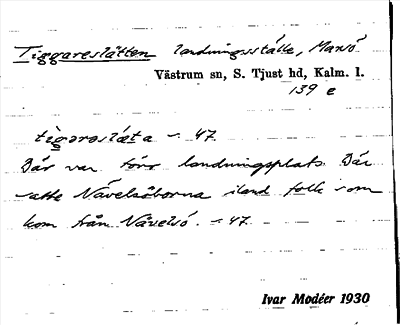 Tiggareslätten landningsställe, Marsö
Västrum sn, S. Tjust hd, Kalm. l.
139 e
tìgarəslæ̀ta ~ 47.
Där var förr landningsplats. Där
satte Nävelsöborna iland folk som
kom från Nävelsö. ~ 47.
Ivar Modéer 1930